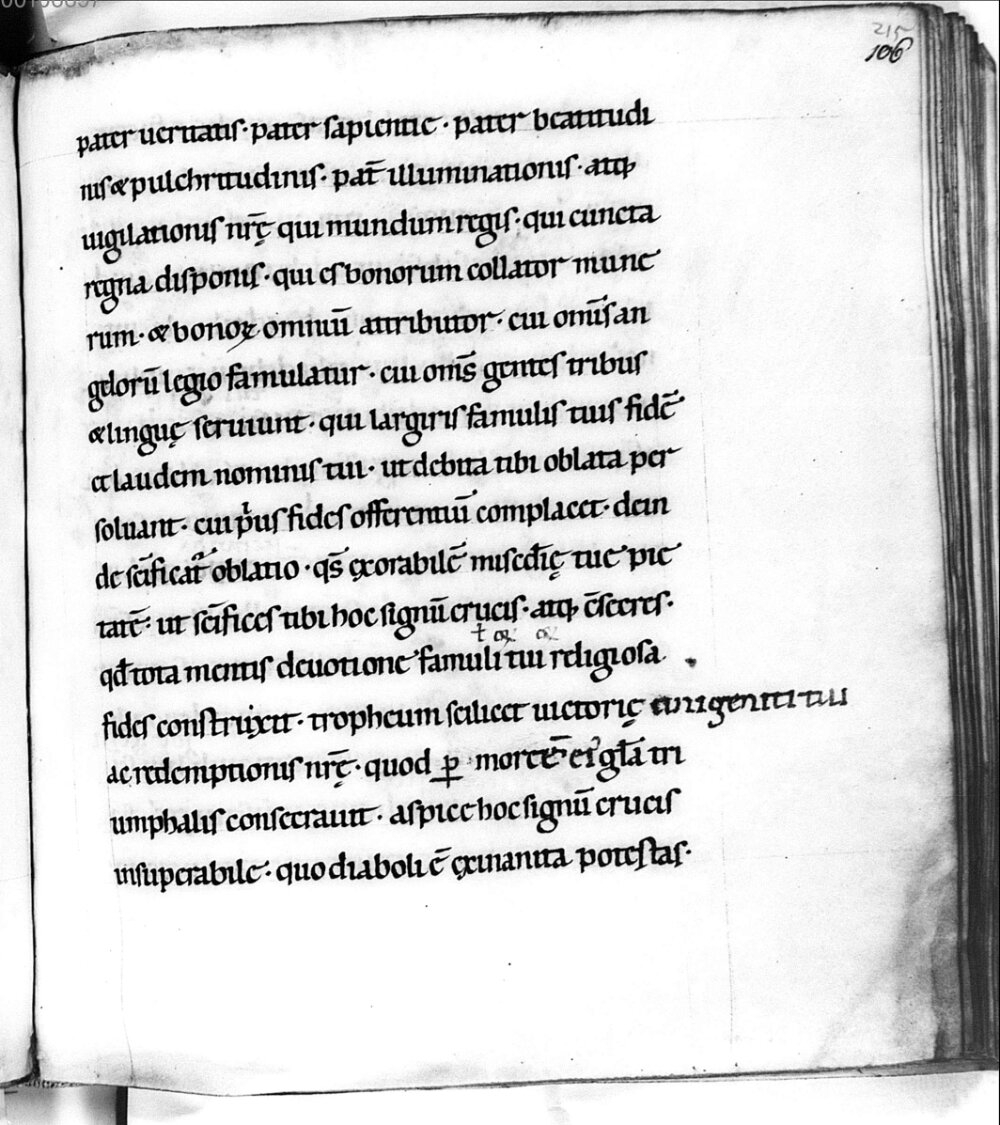 215
106
pater ueritatis· pater sapientie· pater beatitudi
nis & pulchritudinis· pat̄ illuminationis· atq;
uigilationis nr̄ę qui mundum regis· qui cuncta
regna disponis· qui es bonorum collator mune
rum· & bonoꝝ omniū attributor· cui om̄is an
gelorū legio famulatur· cui om̄s gentes tribus
& linguę seruiunt· qui largiris famulis tuis fidē·
et laudem nominis tui· ut debita tibi oblata per
soluant· cui pⁱus fides offerentiū complacet· dein
de sc̄ificat᷑ oblatio· qs̄ ęxorabilē misc̄dię tue pie
tatē· ut sc̄ifices tibi hoc signū crucis· atq; c̄secres·
qđ tota mentis deuotione famuli tui religiosa
fides construxit· tropheum scilicet uictorię unigeniti tui
ac redemptionis nr̄ę· quod ꝑ morte ei᷒ gl̄a tri
umphalis consecrauit· aspice hoc signū crucis
insuperabile· quo diaboli ē ęxinanita potestas·